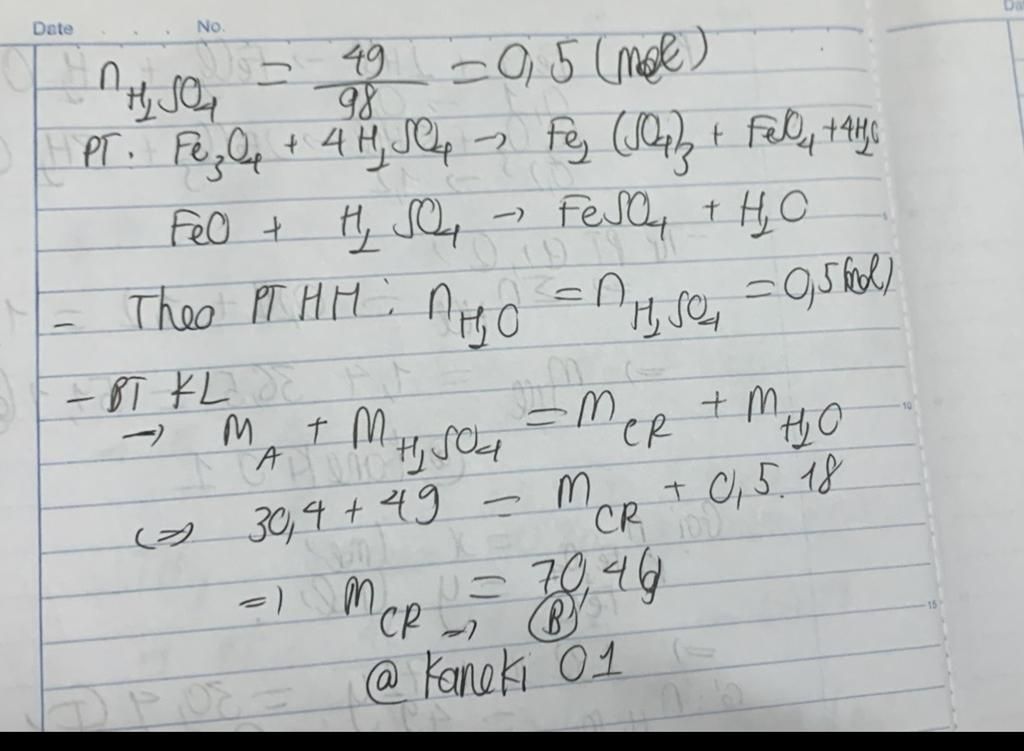 Date No.
n H₂SO₄ = 49/98 = 0,5 (mol)
PT. Fe₃O₄ + 4H₂SO₄ → Fe₂(SO₄)₃ + FeO₄ + 4H₂O
FeO + H₂SO₄ → FeSO₄ + H₂O
- Theo PTHH: n H₂O = n H₂SO₄ = 0,5 (mol)
- BT KL
→ m A + m H₂SO₄ = m CR + m H₂O
⇔ 30,4 + 49 = m CR + 0,5.18
⇒ m CR = 70,4g
→ B
@ Kaneki 01